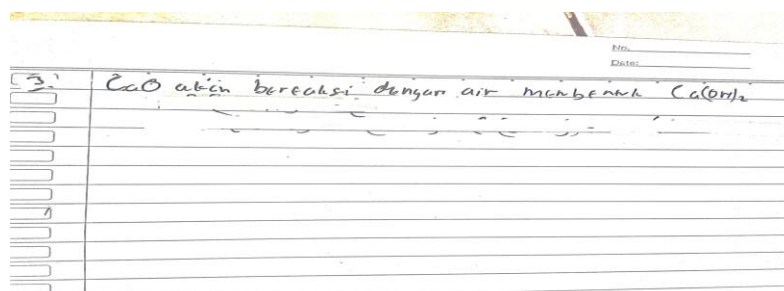 No.
Date:
[3] CaO akan bereaksi dengan air membentuk Ca(OH)2